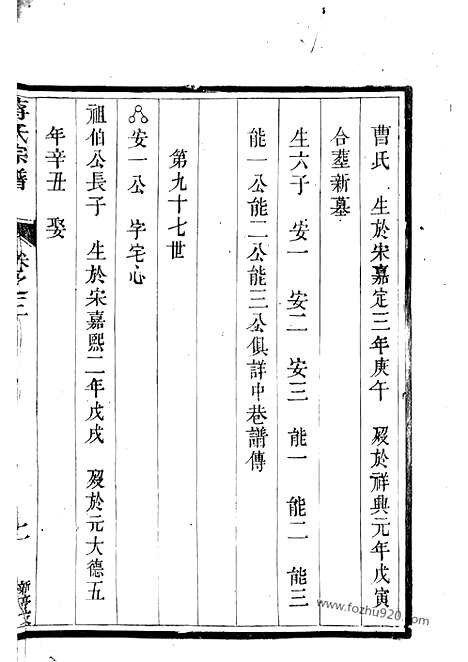 曹氏 生於宋嘉定三年庚午 歿於祥興元年戊寅
合塟新墓
生六子 安一 安二 安三 能一 能二 能三
能一公能二公能三公俱詳中巷譜傳
第九十七世
安一公 字宅心
祖伯公長子 生於宋嘉熙二年戊戌 歿於元大德五
年辛丑 娶
氏宗譜
www.fozhu920.com